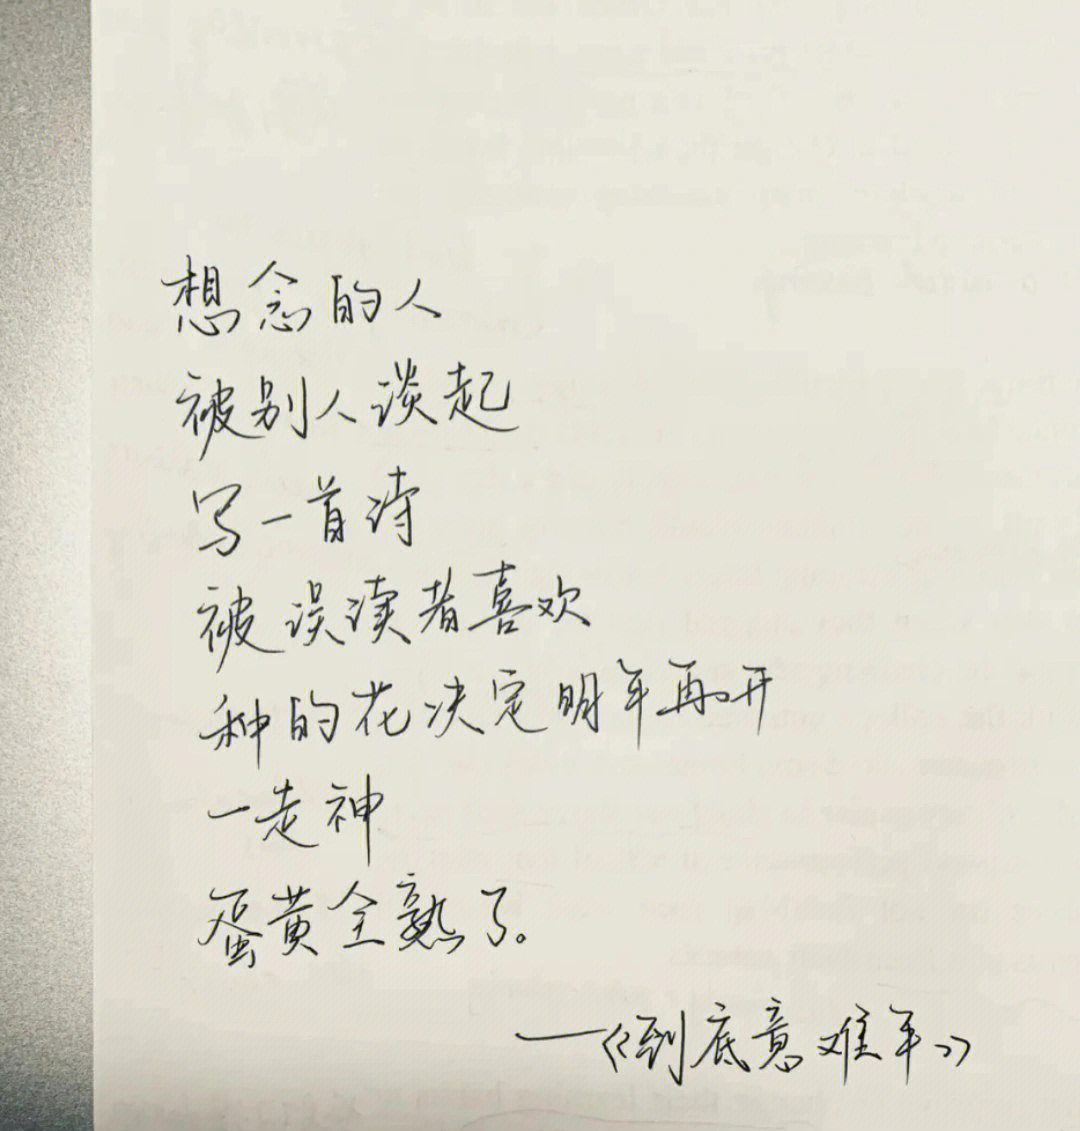 想念的人
被别人谈起
写一首诗
被误读者喜欢
种的花决定明年再开
一走神
蛋黄全熟了。
——《到底意难平》